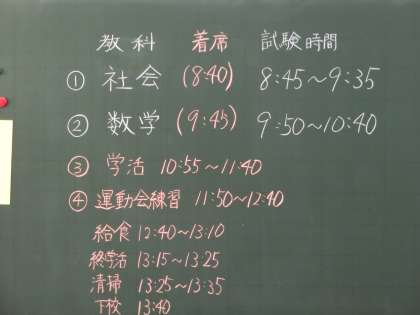 教科 着席 試験時間
① 社会 (8:40) 8:45～9:35
② 数学 (9:45) 9:50～10:40
③ 学活 10:55～11:40
④ 運動会練習 11:50～12:40
給食 12:40～13:10
終学活 13:15～13:25
清掃 13:25～13:35
下校 13:40